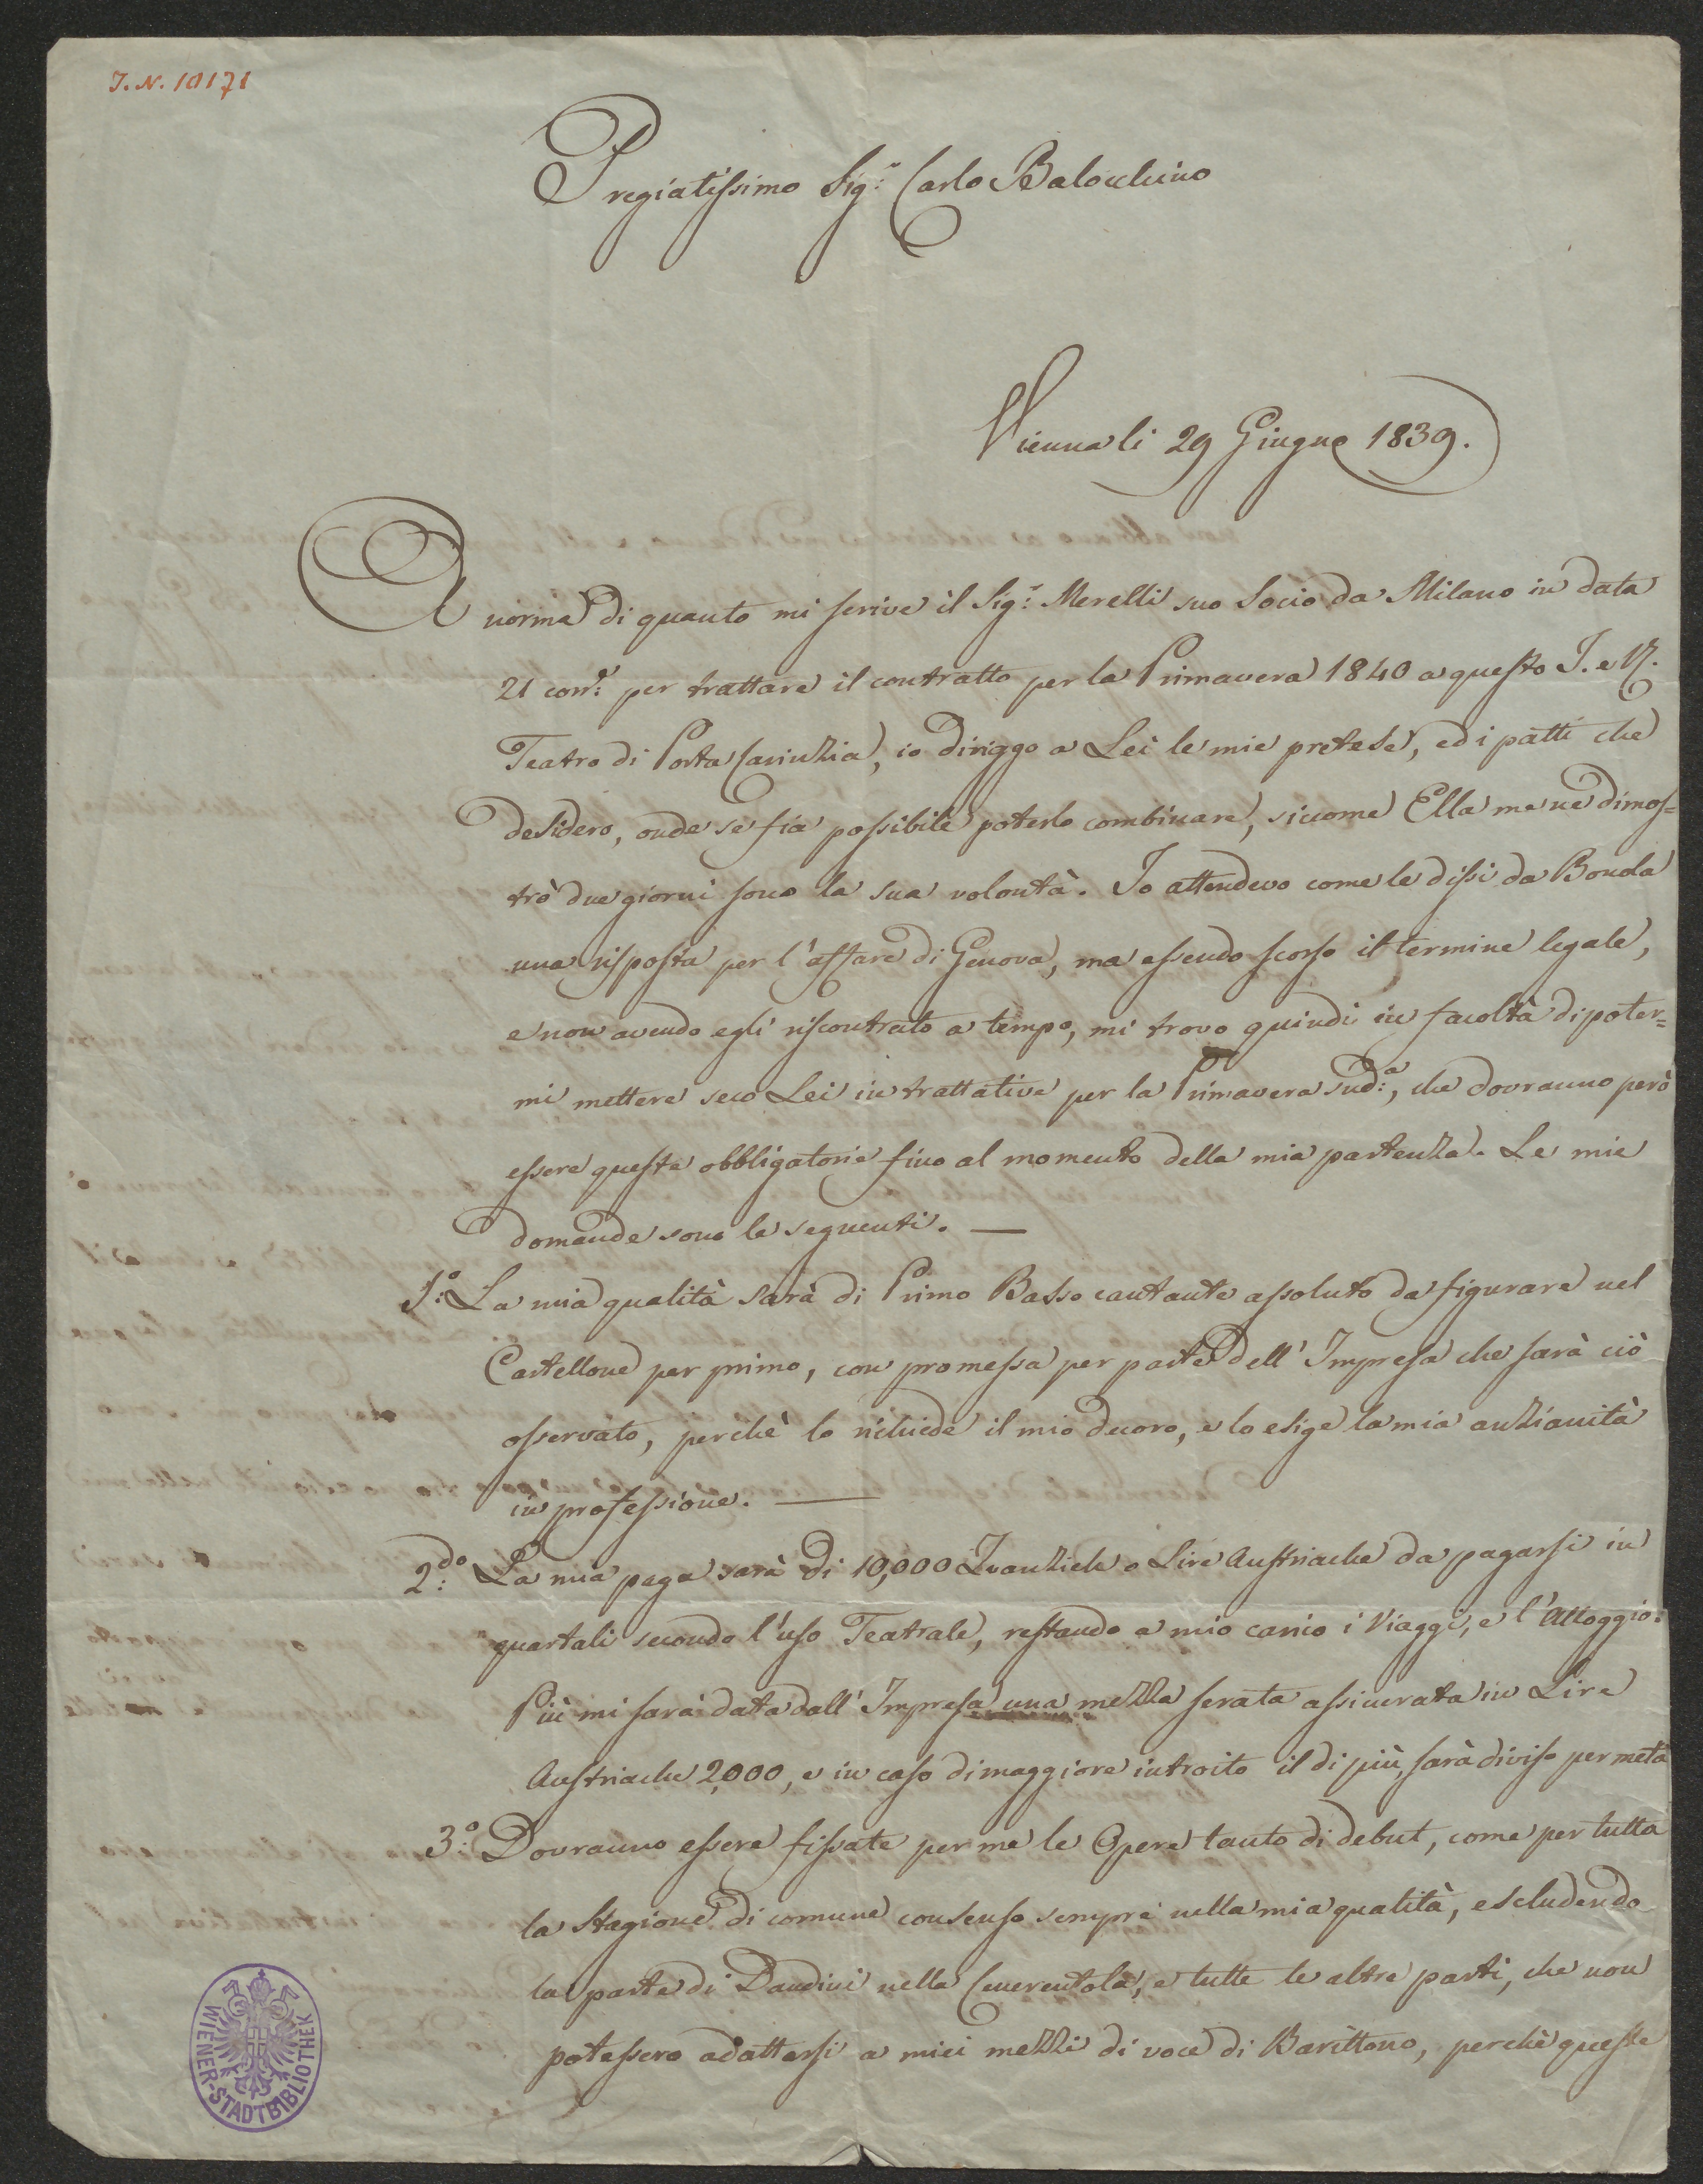 J. N. 10171
Pregiatissimo Sig.r Carlo Balocchino
Vienna li 29 Giugno 1839.
A norma di quanto mi scrive il Sig.r Merelli suo Socio da Milano in data
21 corr.e per trattare il contratto per la Primavera 1840 a questo I. e R.
Teatro di Porta Carinzia, io diriggo a Lei le mie pretese, ed i patti che
desidero, onde se fia possibile poterlo combinare, siccome Ella me ne dimos=
trò due giorni sono la sua volontà. Io attendevo come le dissi da Bonola
una risposta per l'affare di Genova, ma essendo scorso il termine legale,
e non avendo egli riscontrato a tempo, mi trovo quindi in facoltà di poter=
mi mettere seco Lei in trattative per la Primavera sud.a, che dovranno però
essere queste obbligatorie fino al momento della mia partenza. Le mie
domande sono le seguenti. —
1.o La mia qualità sarà di Primo Basso cantante assoluto da figurare nel
Cartellone per primo, con promessa per parte dell'Impresa che sarà ciò
osservato, perchè lo richiede il mio decoro, e lo esige la mia anzianità
in professione. —
2.do La mia paga sarà di 10,000 Zvanziche o Lire Austriache da pagarsi in
quartali secondo l'uso Teatrale, restando a mio carico i Viaggi, e l'Alloggio.
Più mi sarà data dall'Impresa una mezza serata assicurata in Lire
Austriache 2,000, e in caso di maggiore introito il di più, sarà diviso per metà
3.o Dovranno essere fissate per me le Opere tanto di debut, come per tutta
la Stagione di comune consenso sempre nella mia qualità, escludendo
la parte di Dandini nella Cenerentola, e tutte le altre parti, che non
potessero adattarsi a miei mezzi di voce di Barittono, perchè queste
WIENER-STADTBIBLIOTHEK